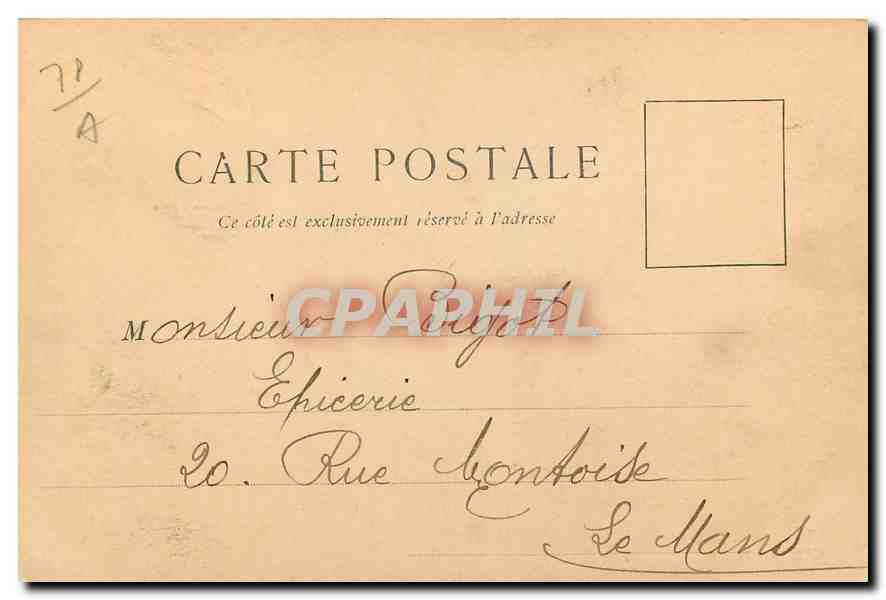 CARTE POSTALE
Ce côté est exclusivement réservé à l'adresse
Monsieur Bigot
CPAPHIL
Epicerie
20. Rue Montoise
Le Mans